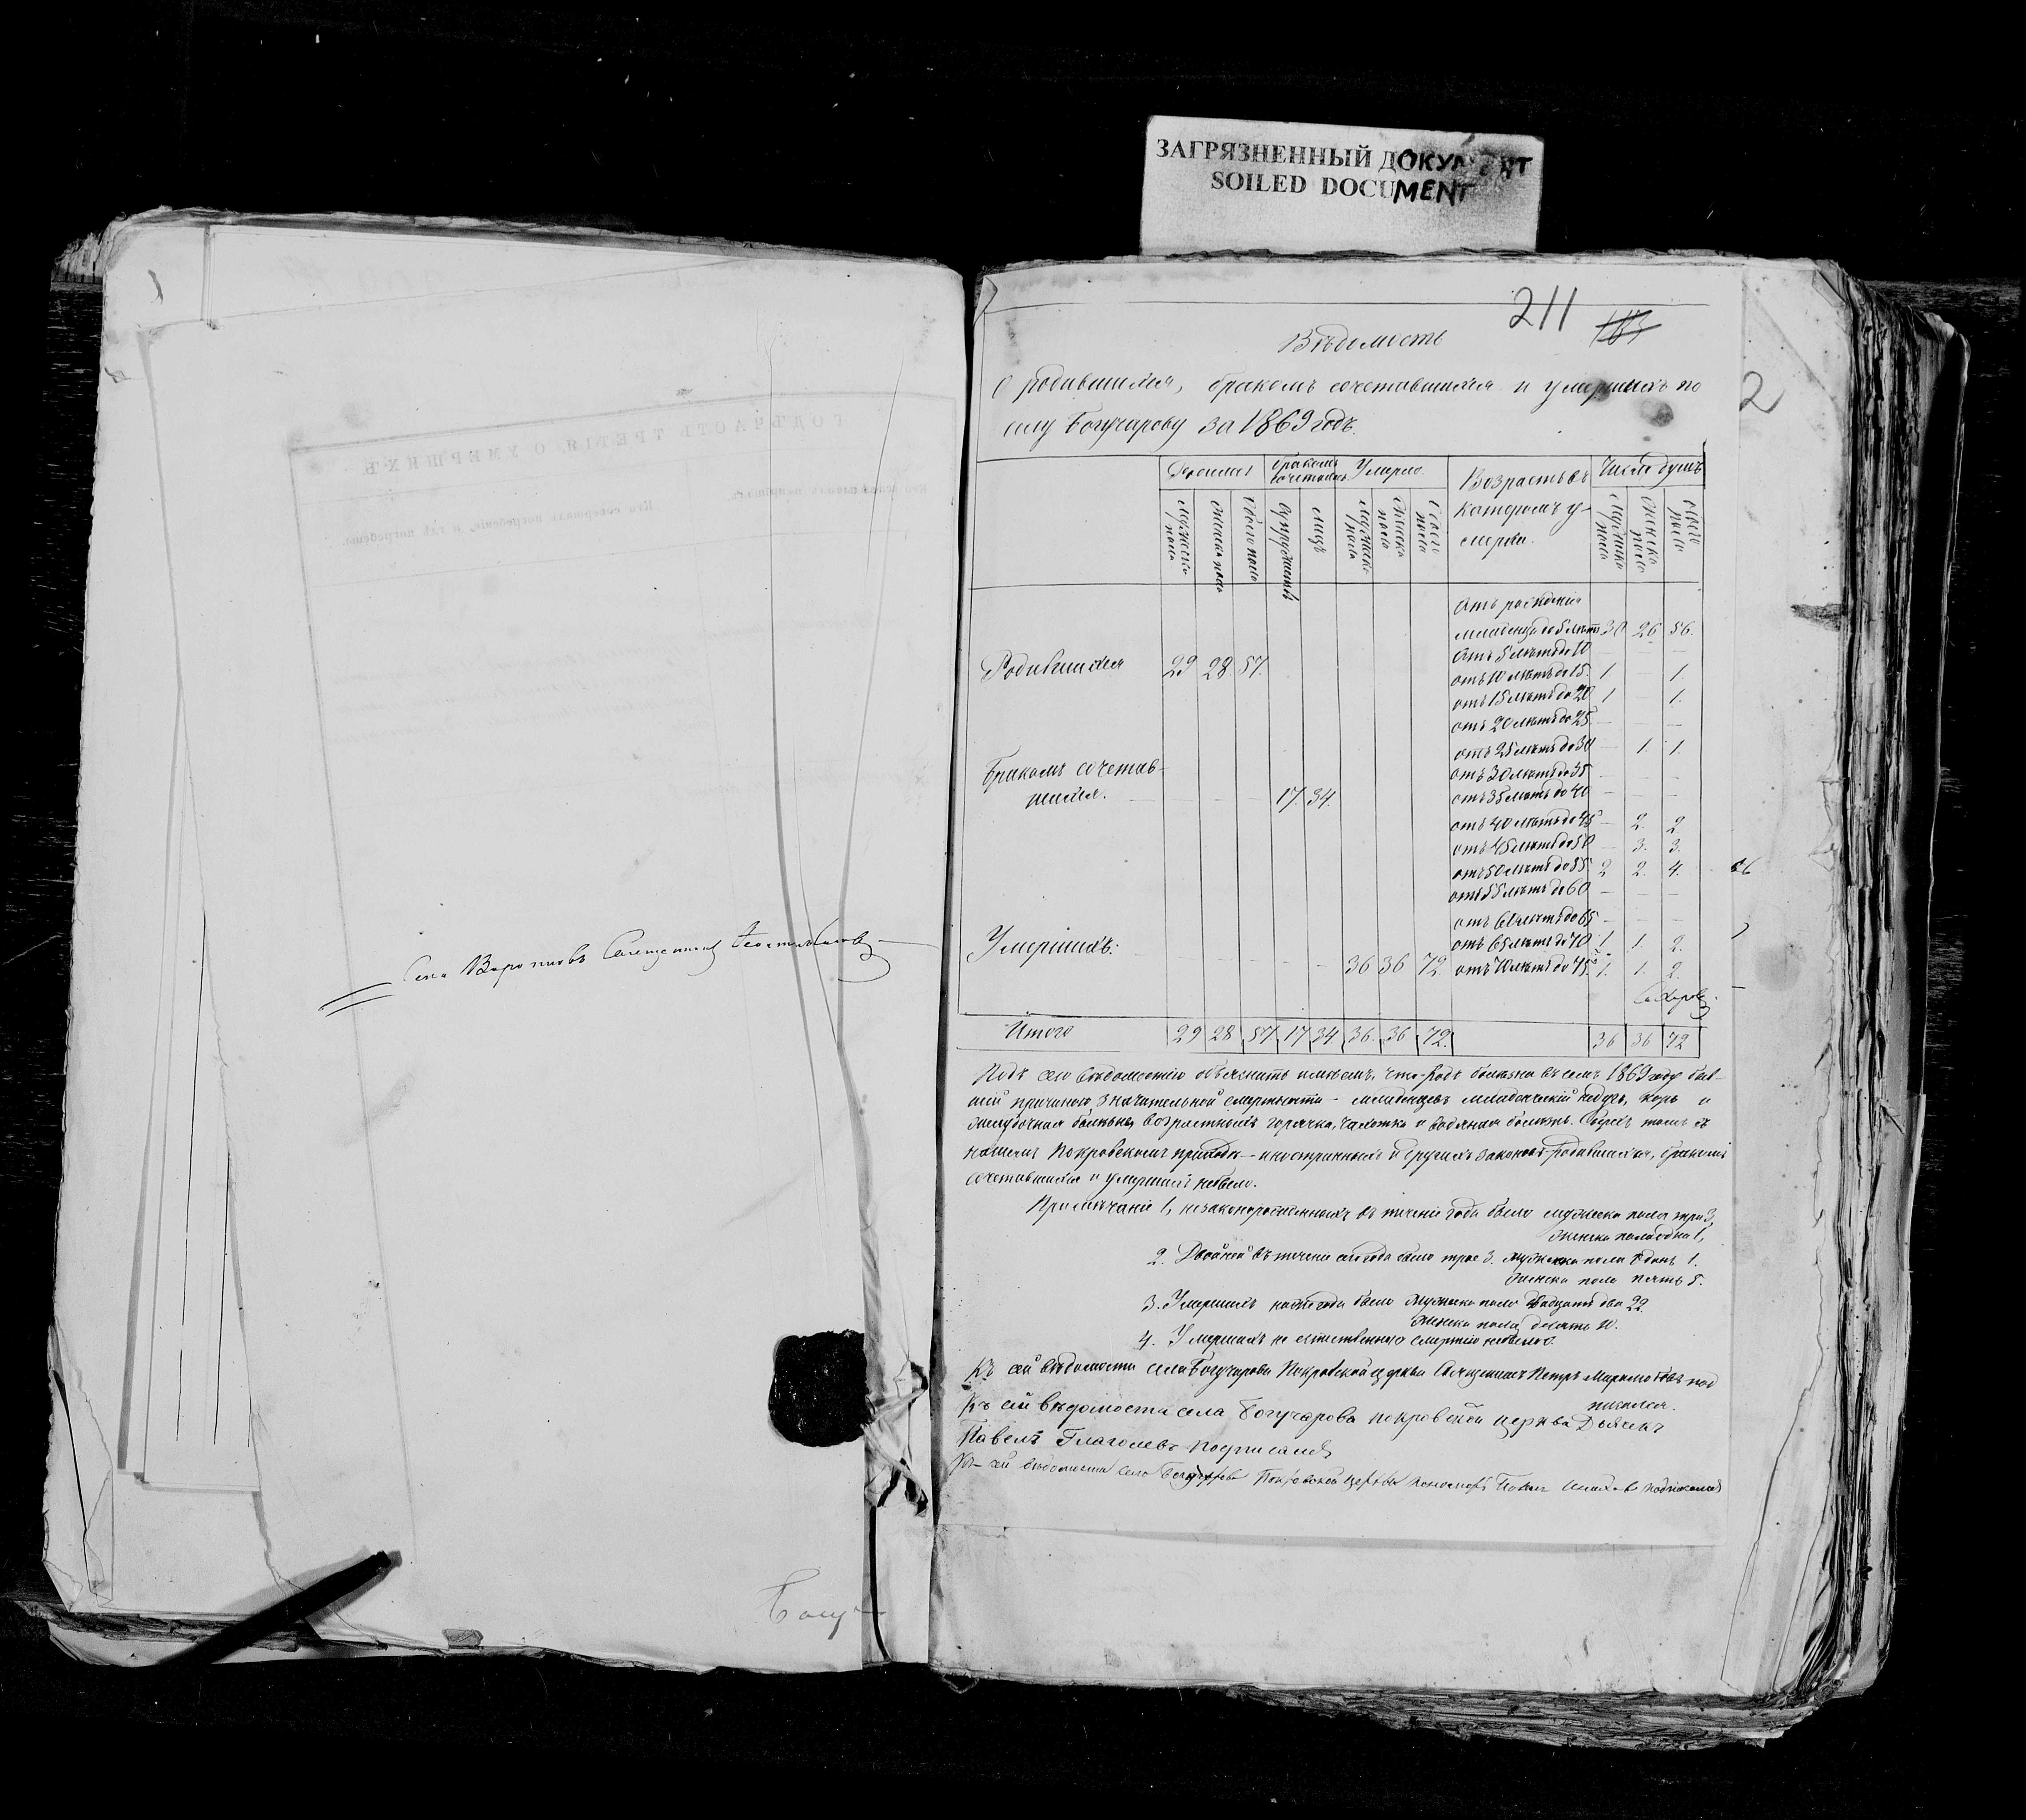 ЗАГРЯЗНЕННЫЙ ДОКУМЕНТ
SOILED DOCUMENT
211
2
Вѣдомость
О родившихся, бракомъ сочетавшихся и умершихъ по
селу Богучарову за 1869 годъ.
бракомъ сочеталось Умерло Возрастъ въ которомъ умерли Число душъ
мужеска пола женска пола обоего пола супружествъ лицъ мужеска пола женска пола обоего пола мужеска пола женска пола обоего пола
Отъ рожденія
младенца до 5 лѣтъ 30 26 56.
отъ 5 лѣтъ до 10 — — —
Родившихся 29 28. 57.
отъ 10 лѣтъ до 15. 1. — 1.
отъ 15 лѣтъ до 20 1 — 1.
отъ 20 лѣтъ до 25. — — —
отъ 25 лѣтъ до 30 — 1. 1.
Бракомъ сочетав-
шихся. 17. 34.
отъ 30 лѣтъ до 35 — — —
отъ 35 лѣтъ до 40 — — —
отъ 40 лѣтъ до 45 — 2. 2.
отъ 45 лѣтъ до 50 — 3. 3.
отъ 50 лѣтъ до 55 2 2. 4.
отъ 55 лѣтъ до 60 — — —
отъ 60 лѣтъ до 65 — — —
отъ 65 лѣтъ до 70 1. 1. 2.
Умершихъ. 36 36 72 отъ 70 лѣтъ до 75. 1. 1. 2.
Итого 29 28 57 17 34 36. 36 72. 36 36 72
Подъ сею вѣдомостію объяснить имѣемъ, что родъ болѣзни въ семъ 1869 году быв-
шій причиною значительной смертности — младенцевъ младенческій недугъ, корь и
желудочная болѣзнь, возрастныхъ горячка, чахотка и водяная болѣзнь. Сверхъ того въ
нашемъ Покровскомъ приходѣ — иностранныхъ и другихъ законовъ родившихся, бракомъ
сочетавшихся и умершихъ небыло.
Примѣчаніе 1, незаконорожденныхъ въ теченіе года было мужеска пола три 3,
женска пола одна 1,
2. Двойней въ теченіе сего года было трое 3. мужеска пола одинъ 1.
женска пола пять 5.
3. Умершихъ было мужеска пола двадцать два 22.
женска пола десять 10.
4. Умершихъ не естественною смертію небыло.
Къ сей вѣдомости села Богучарова Покровской церкви Священникъ Петръ под
писался.
Къ сей вѣдомости села Богучарова покровской церкви Дьячекъ
Павелъ Глаголевъ подписался
Къ сей вѣдомости села Богучарова Покровской церкви пономарь подписался
Богу